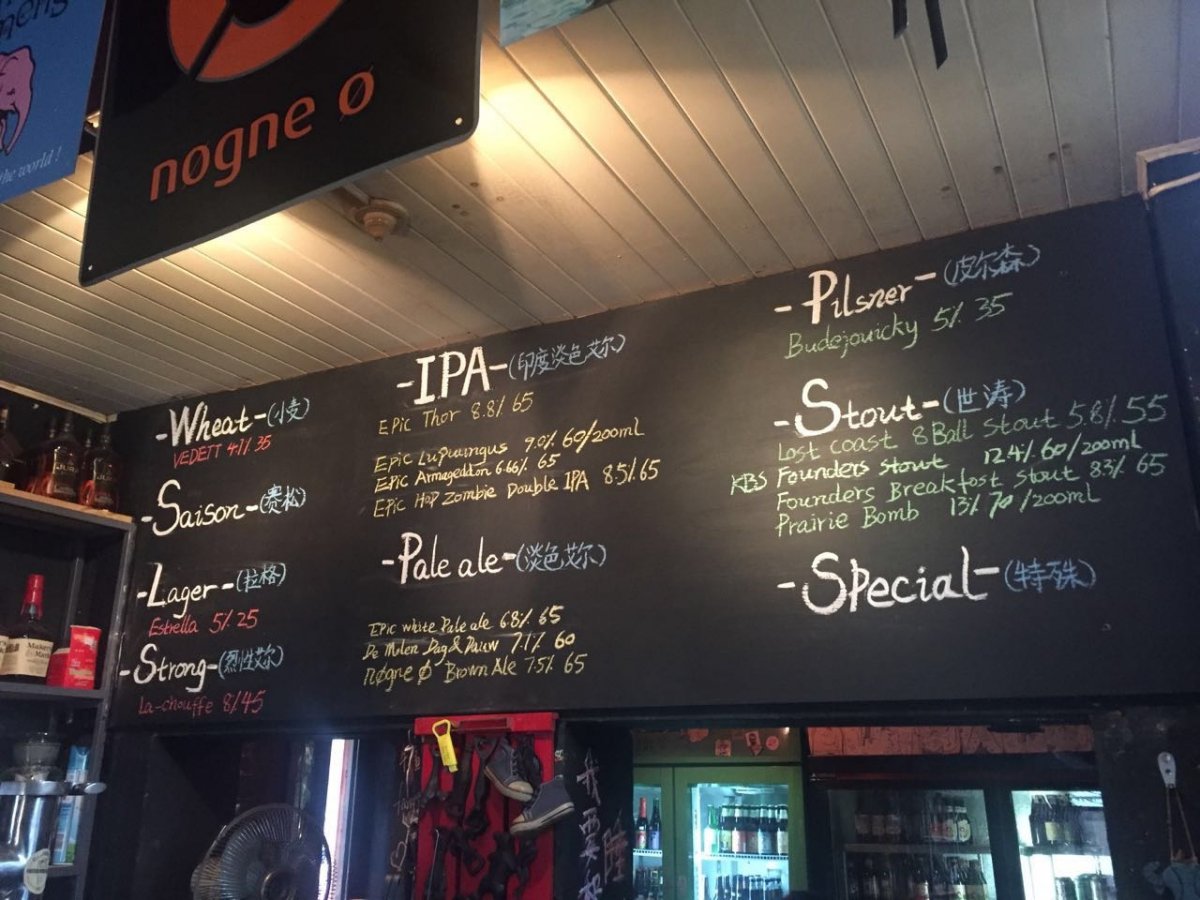 nøgne ø
the world !
-Wheat-(小麦)
VEDETT 4.7% 35
-Saison-(赛松)
-Lager-(拉格)
Estrella 5% 25
-Strong-(烈性艾尔)
La-chouffe 8% 45
-IPA-(印度淡色艾尔)
Epic Thor 8.8% 65
Epic Lupuingus 9.0% 60/200ml
Epic Armageddon 6.66% 65
Epic Hop Zombie Double IPA 8.5% 65
-Pale ale-(淡色艾尔)
Epic white Pale ale 6.8% 65
De Molen Dag & Dauw 7.1% 60
nøgne Ø Brown Ale 7.5% 65
-Pilsner-(皮尔森)
Budejouicky 5% 35
-Stout-(世涛)
Lost coast 8 Ball Stout 5.8% 55
KBS Founders stout 12.4% 60/200ml
Founders Breakfast stout 8.3% 65
Prairie Bomb 13% 70/200ml
-Special-(特殊)
Maker's Mark
我要